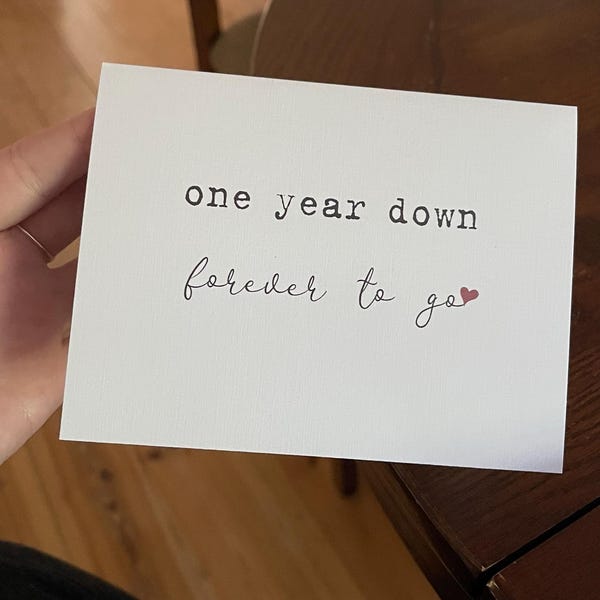 one year down
forever to go